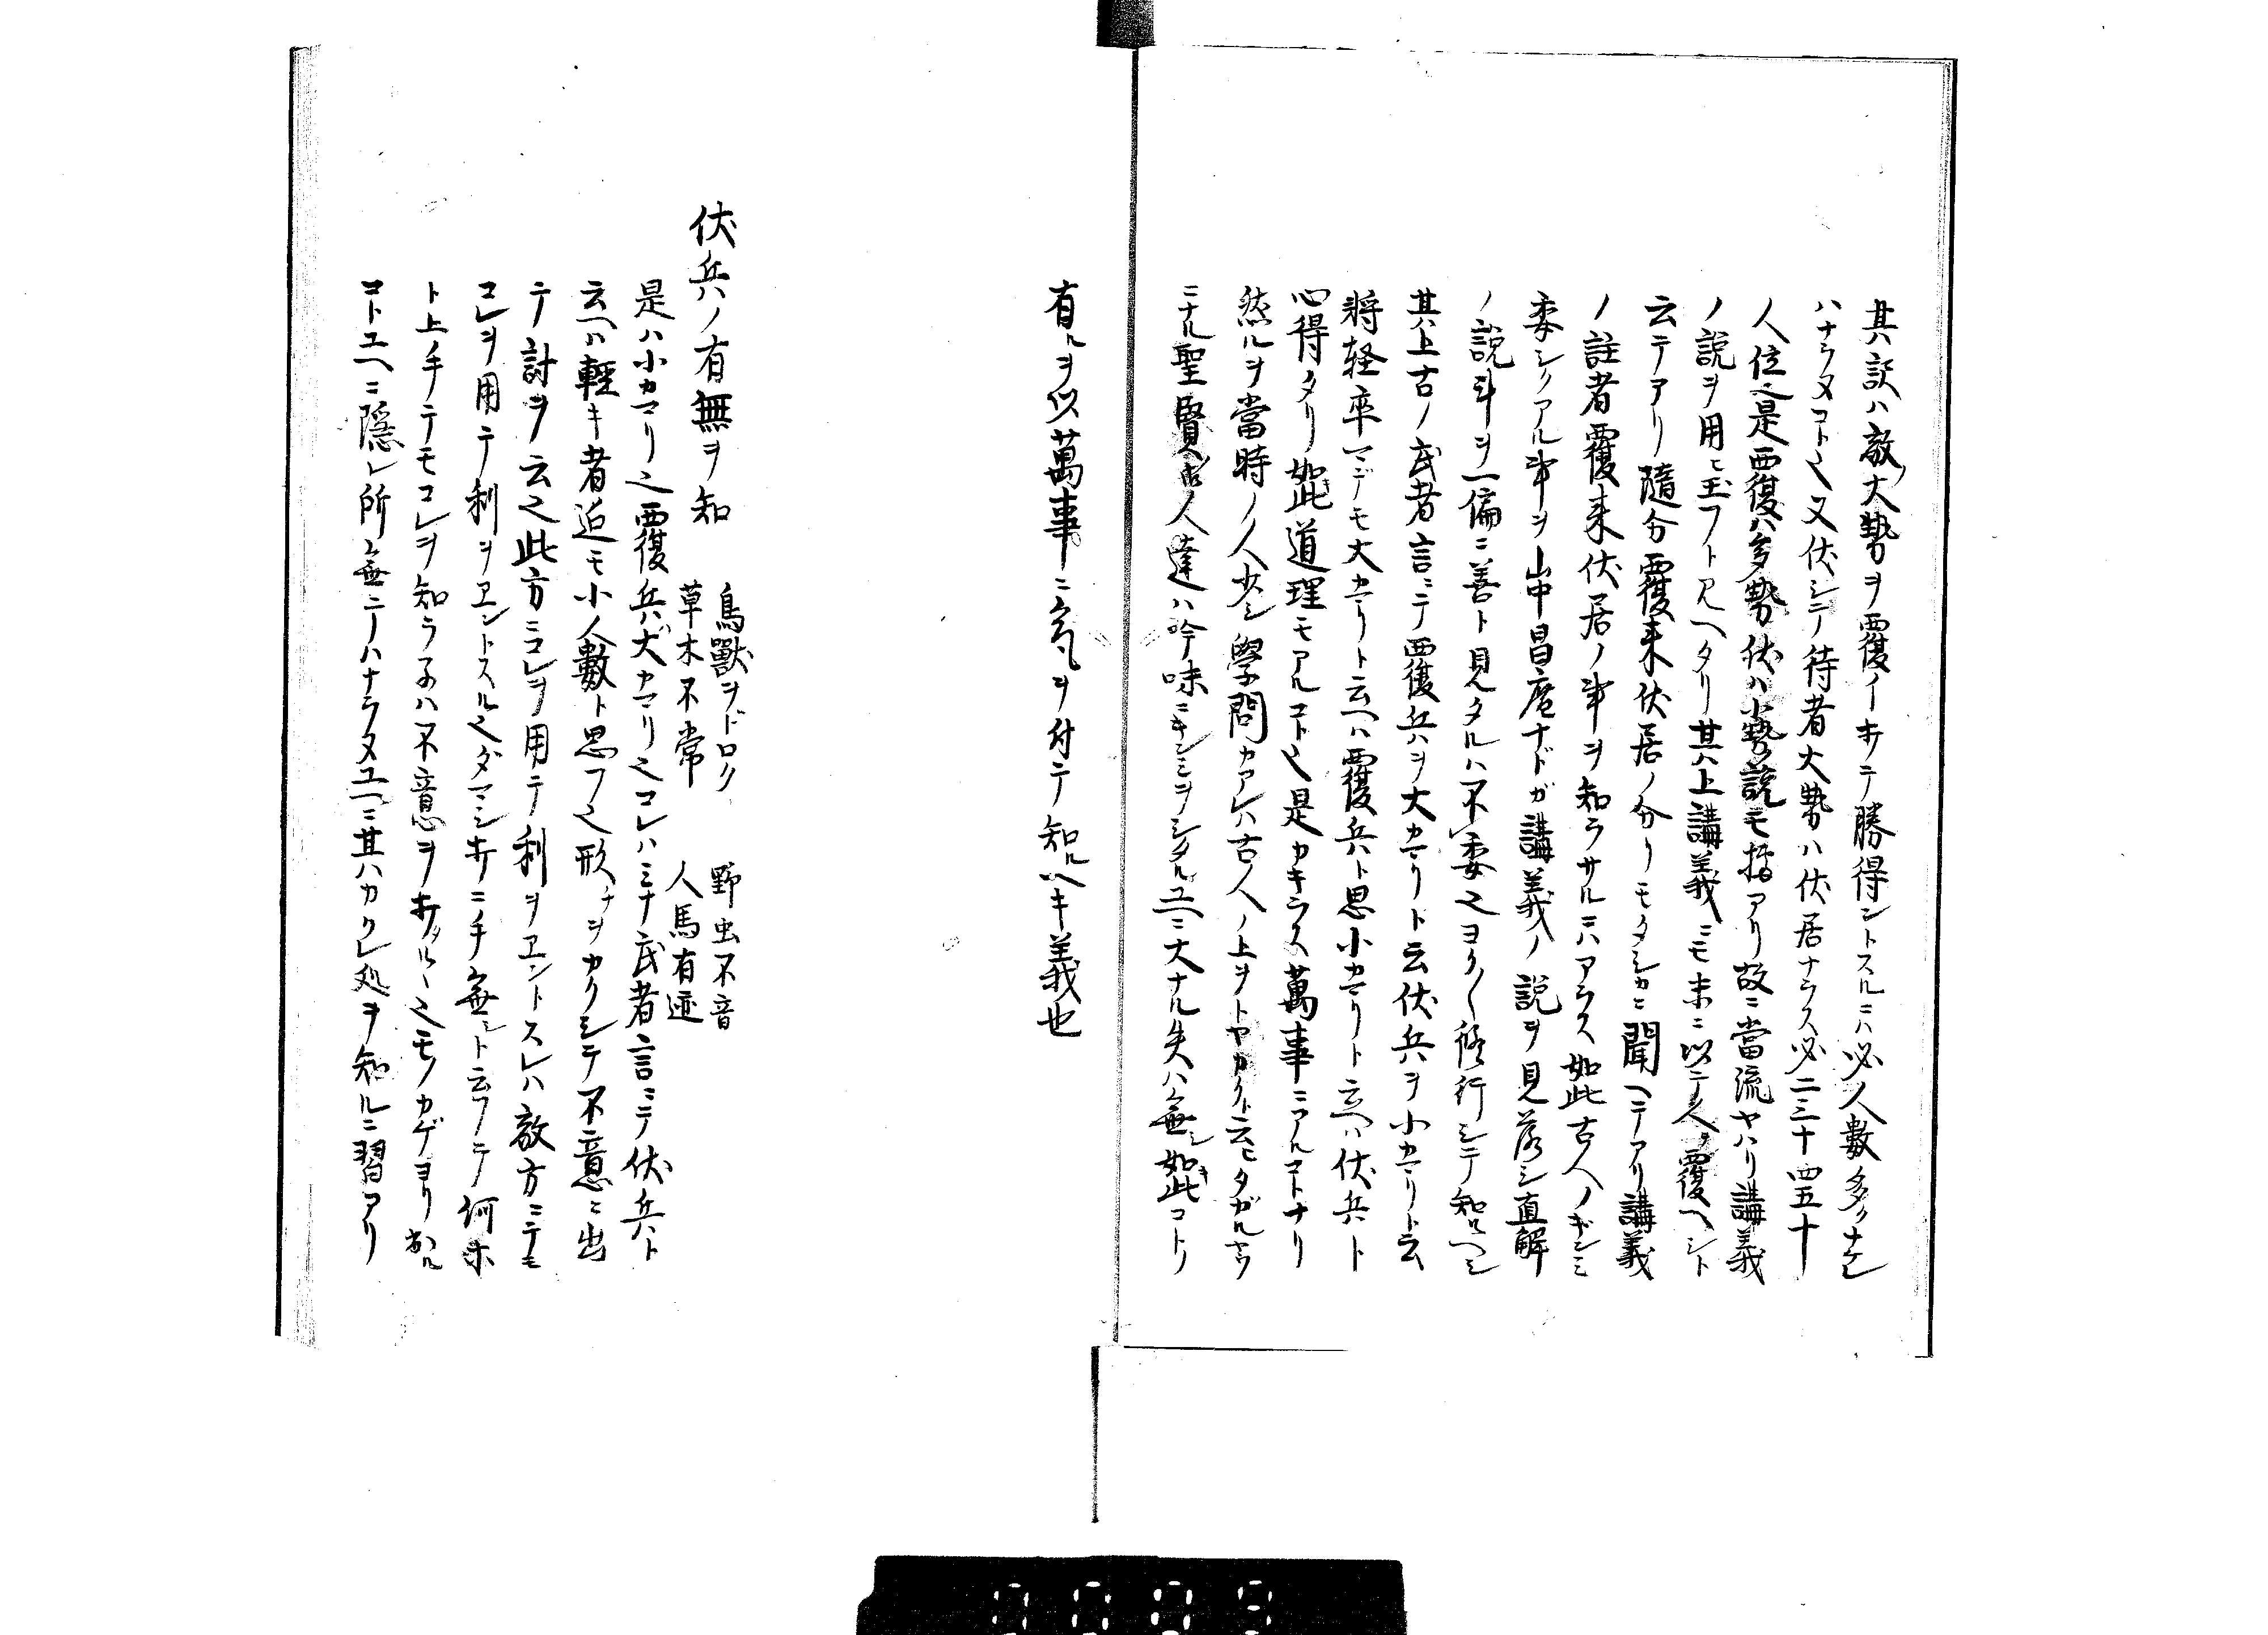 其訳ハ敵大勢ヲ覆ノキテ勝得ントスルニハ必人數多クナケレ
ハナラヌコト也又伏シテ待者大勢ハ伏居ナラス必二三十四五十
人位也是覆ハ多勢伏ハ小勢ノ説モ拠アリ故ニ當流ヤハリ講義
ノ説ヲ用ヒ玉フト見ヘタリ其上講義ニモ末ニ以テ人ヲ覆ヘシト
云テアリ随分覆来伏居ノ分リモタシカニ聞ヘテアリ講義
ノ註者覆来伏居ノ事ヲ知ラサルニハアラス如此古人ノギンミ
委シクアル事ヲ山中昌庵ナドガ講義ノ説ヲ見落シ直解
ノ説斗ヲ一偏ニ善ト見タルハ不委也ヨク〱修行シテ知ルヘシ
其上古ノ武者言ニテ覆兵ヲ大カマリト云伏兵ヲ小カマリト云
将軽卒マデモ大カマリト云ヘハ覆兵ト思小カマリト云ヘハ伏兵ト
心得タリ如此道理モアルコト也是カキラス萬事ニアルコトナリ
然ルヲ當時ノ人少シ學問カアレハ古人ノ上ヲトヤカクト云モタガルヤウ
ニナル聖賢古人達ハ吟味ニギンミヲシタルユヘニ大ナル失ハ無シ如此コトリ
有ルヲ以萬事ニ気ヲ付テ知ルヘキ義也
伏兵ノ有無ヲ知
鳥獸ヲドロク　野虫不音
草木不常　人馬有迹
是ハ小カマリ也覆兵ハ大カマリ也コレハミナ武者言ニテ伏兵ト
云ヘハ輕キ者迠モ小人數ト思フ也形チヲカクシテ不意ニ出
テ討ヲ云也此方ニコレヲ用テ利ヲヱントスレハ敵方ニテモ
コレヲ用テ利ヲヱントスル也ダマシキニ手無シト云フテ何ホ
ト上手テモコレヲ知ラ子ハ不意ヲキタル也モノカゲヨリおル
コトユヘニ隱レ所無テハナラヌユヘニ其ハカクレ処ヲ知ルニ習アリ